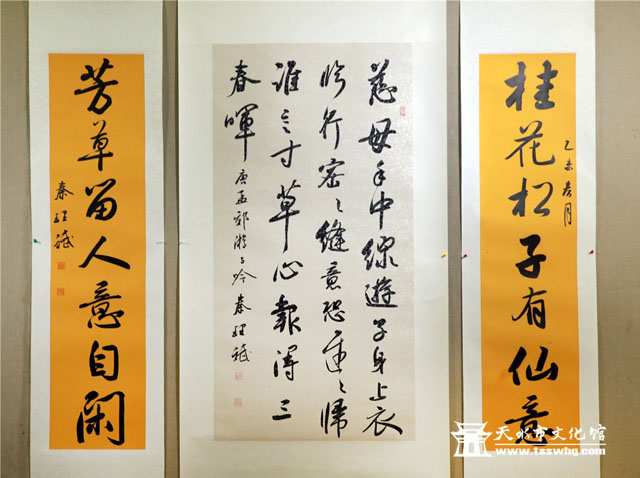 桂花松子有仙意
乙未春月
慈母手中線遊子身上衣
臨行密〻縫意恐遲〻歸
誰言寸草心報得三
春暉 唐孟郊游子吟 秦
芳草留人意自閑
秦
天水市文化馆
www.tsswhg.com